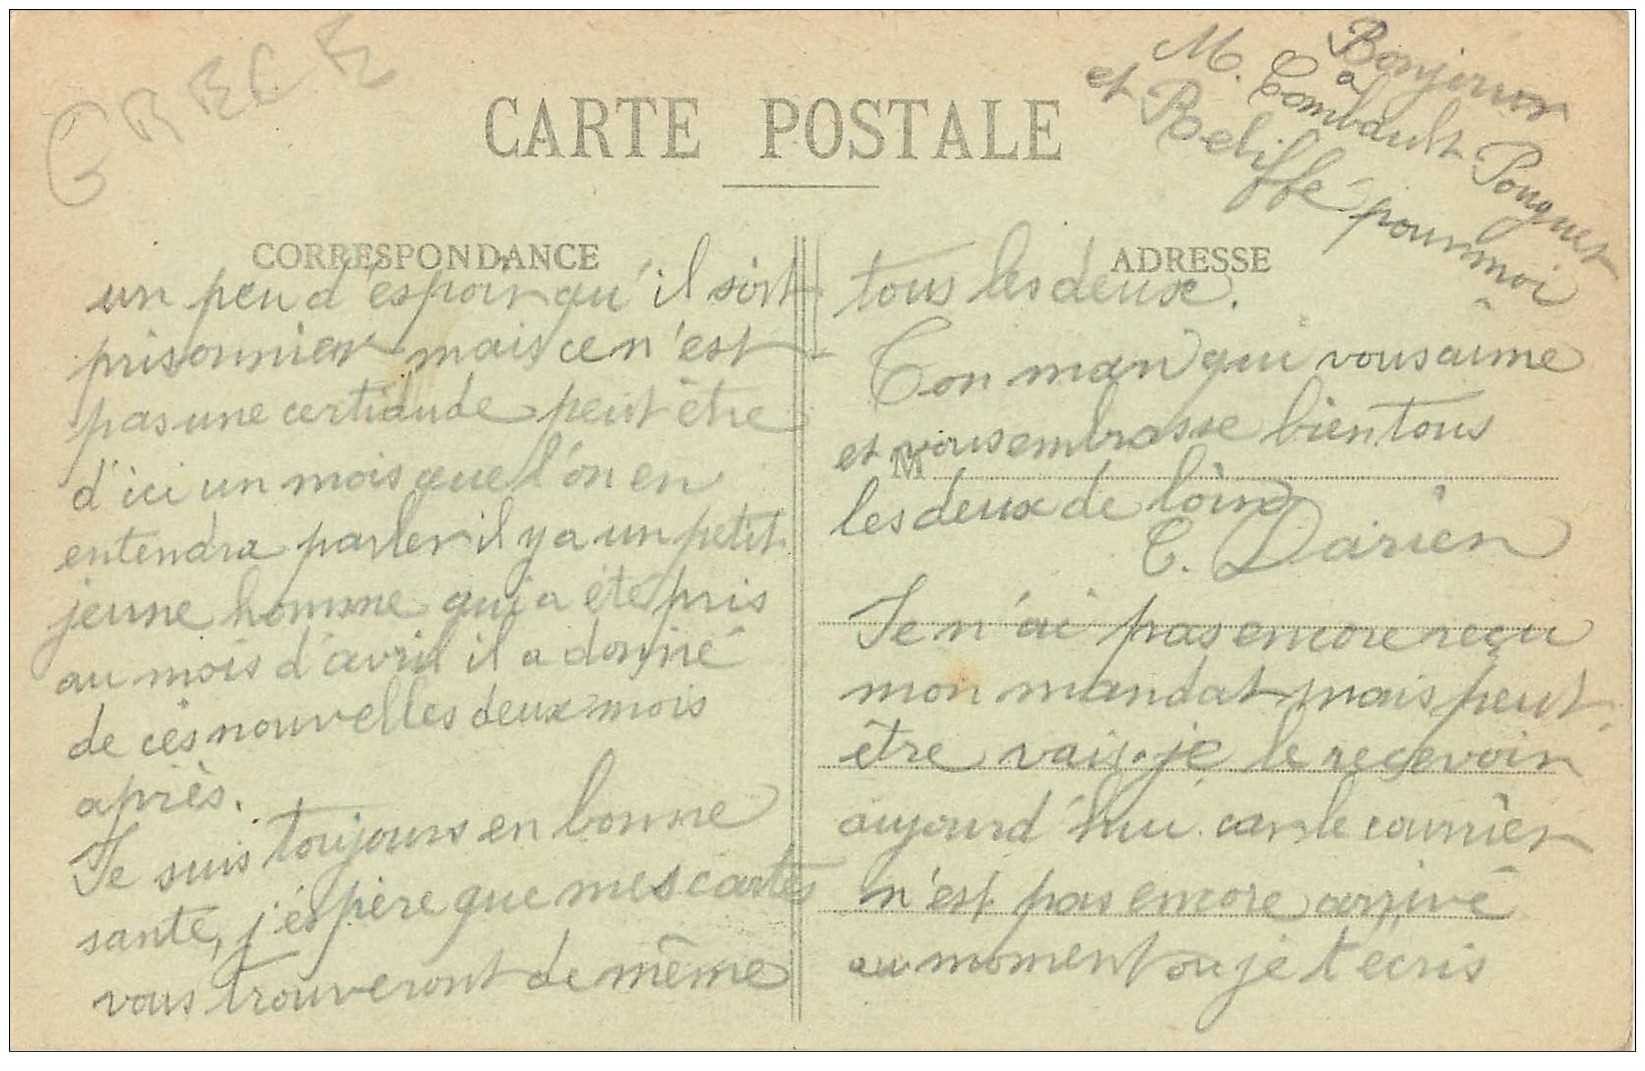 GRECE
CARTE POSTALE
Bonjour
à
M. Combault Pougnet
et Reliffé pour moi
CORRESPONDANCE
un peu d'espoir qu'il soit
prisonnier mais ce n'est
pas une certidude peut être
d'ici un mois que l'on en
entendra parler il y a un petit
jeune homme qui a été pris
au mois d'avril il a donné
de ces nouvelles deux mois
après.
Je suis toujours en bonne
santé, j'éspère que mes cartes
vous trouveront de même
ADRESSE
tous les deux.
Ton mari qui vous aime
M
et vous embrasse bien tous
les deux de loin
C. Darien
Je n'ai pas encore reçu
mon mandat mais peut
être vais-je le recevoir
aujourd'hui car le courrier
n'est pas encore arrivé
au moment ou je t'ecris